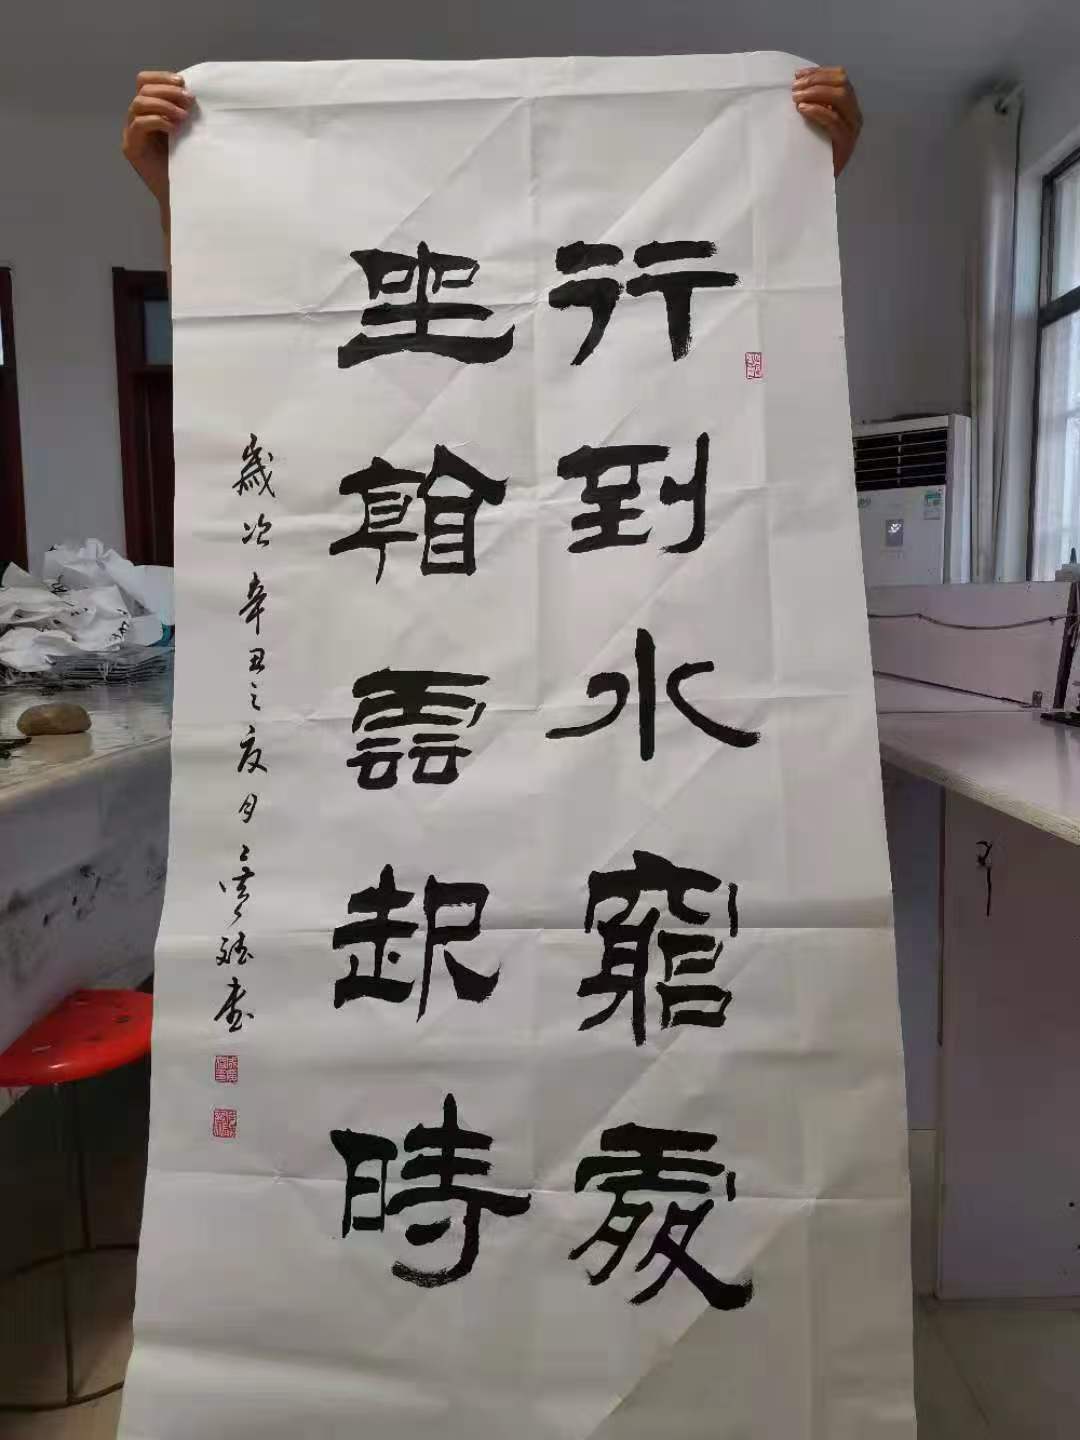 行到水窮處
坐看雲起時
歲次辛丑之夏月書